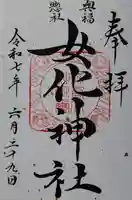 奉拝
興福
總社
女化神社
令和七年 六月二十九日